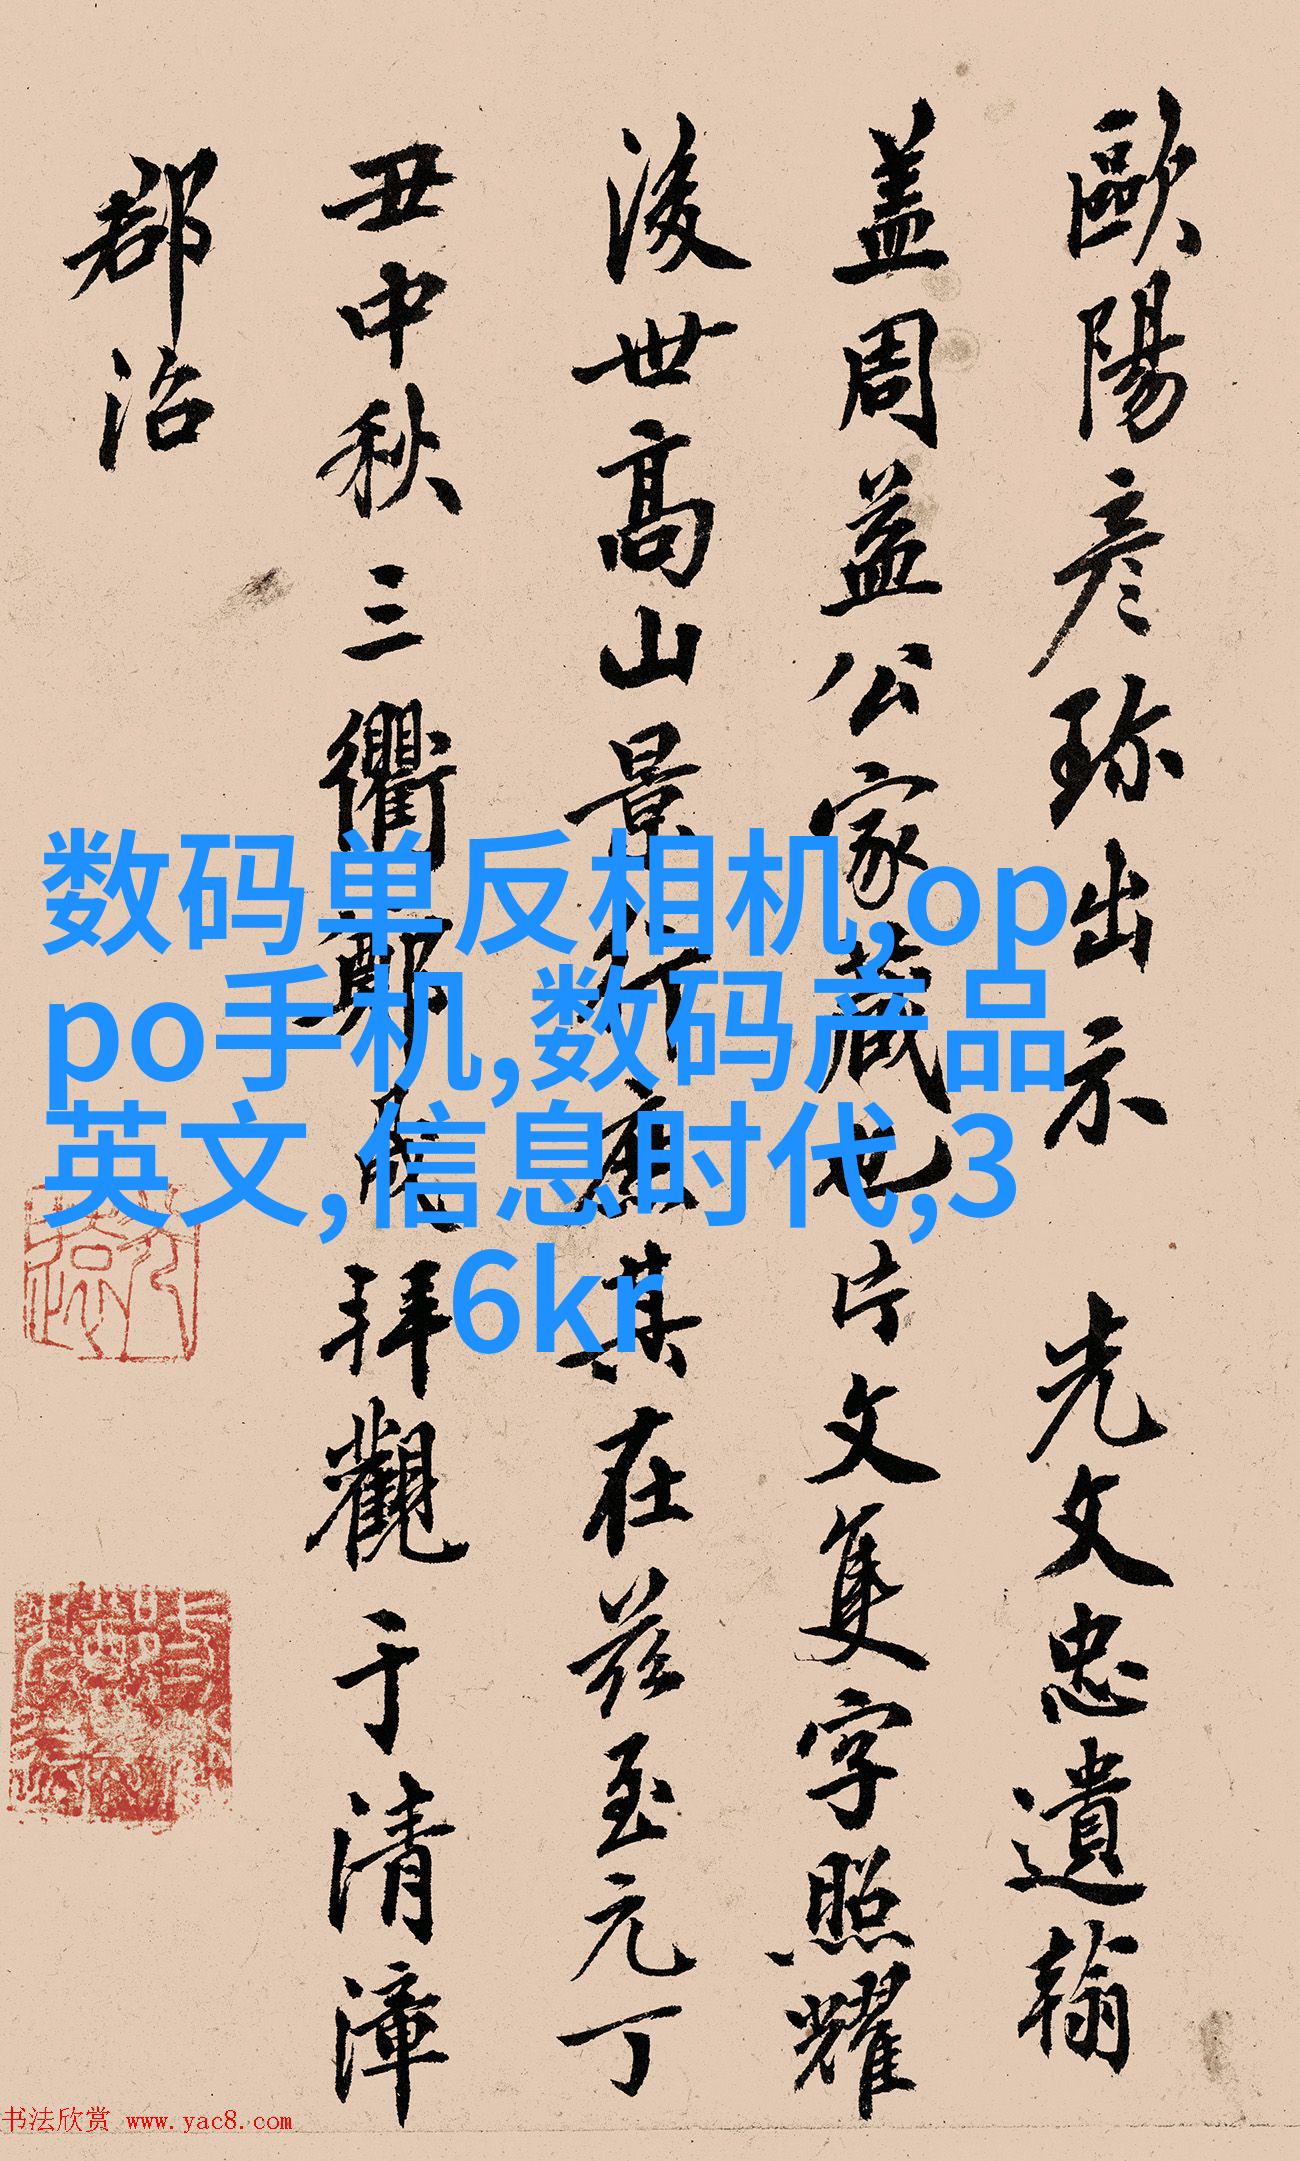 歐陽彥珎出示 先文忠遺翰
盖周益公家藏也片文隻字照耀
後世高山景行應其在茲至元丁
丑中秋三衢鄭成拜觀于清漳
郡治
数码单反相机,op
po手机,数码产品
英文,信息时代,3
6kr
书法欣赏 www.yac8.com